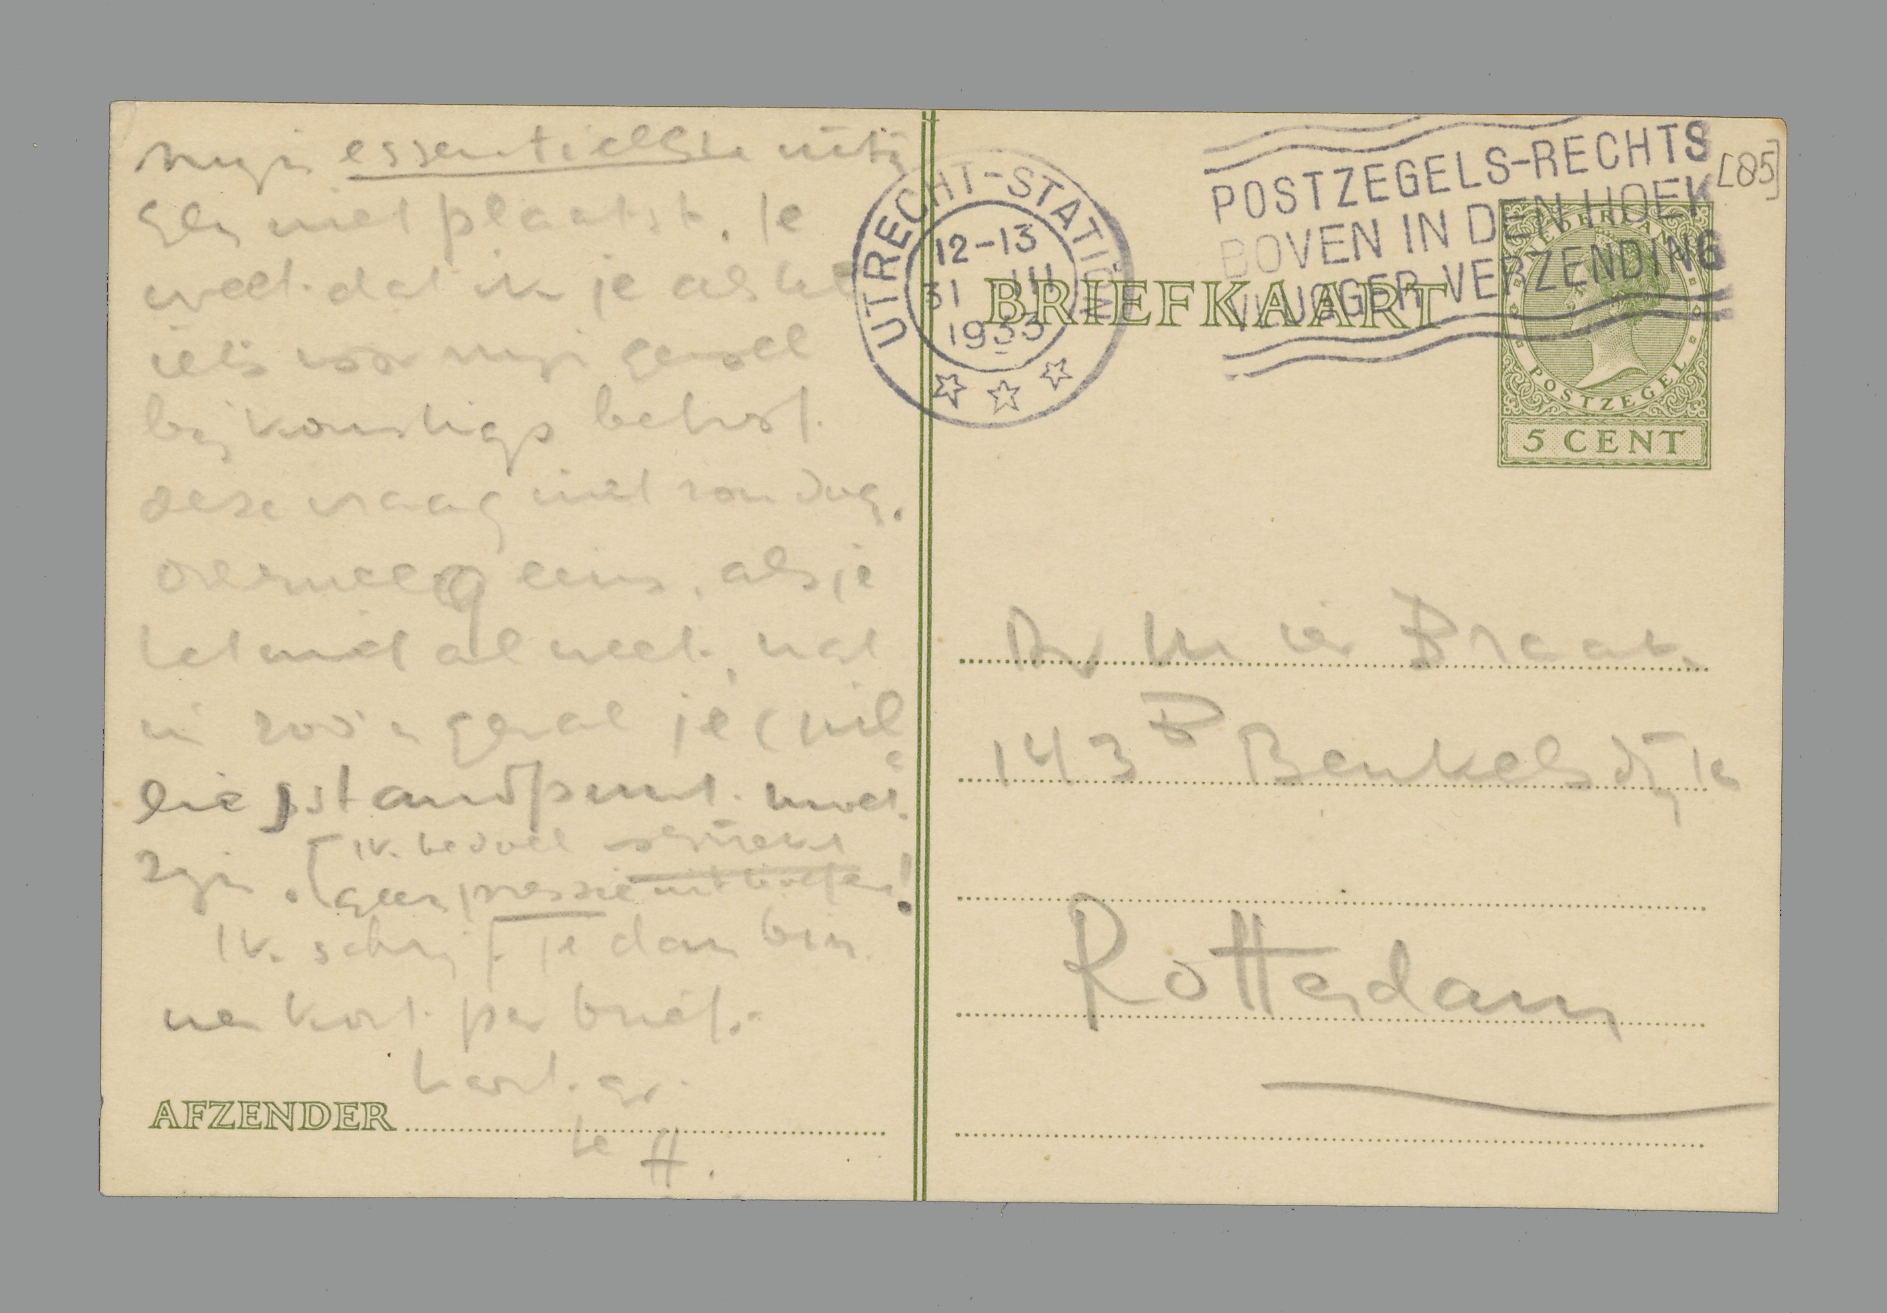 mijn essentieelste uitg
gey niet plaatst. Je
weet dat ik je als het
iets voor mijn gevoel
bijkomstigs betrof
deze vraag niet zou doen.
Overweeg eens, als je
het niet al weet, wat
in zoo'n geval je (wil
lie) standpunt moet
zijn. [Ik bedoel
geen pressie !
Ik schrijf je dan bin
nen kort per brief.
hart. gr.
te H.
AFZENDER
UTRECHT-STATION
12-13
31 III
1933
POSTZEGELS-RECHTS
BOVEN IN DEN HOEK
VLUGGER VERZENDING
[85]
BRIEFKAART
NEDERLAND
POSTZEGEL
5 CENT
Dr M ter Braak
143 B Beukelsdijk
Rotterdam